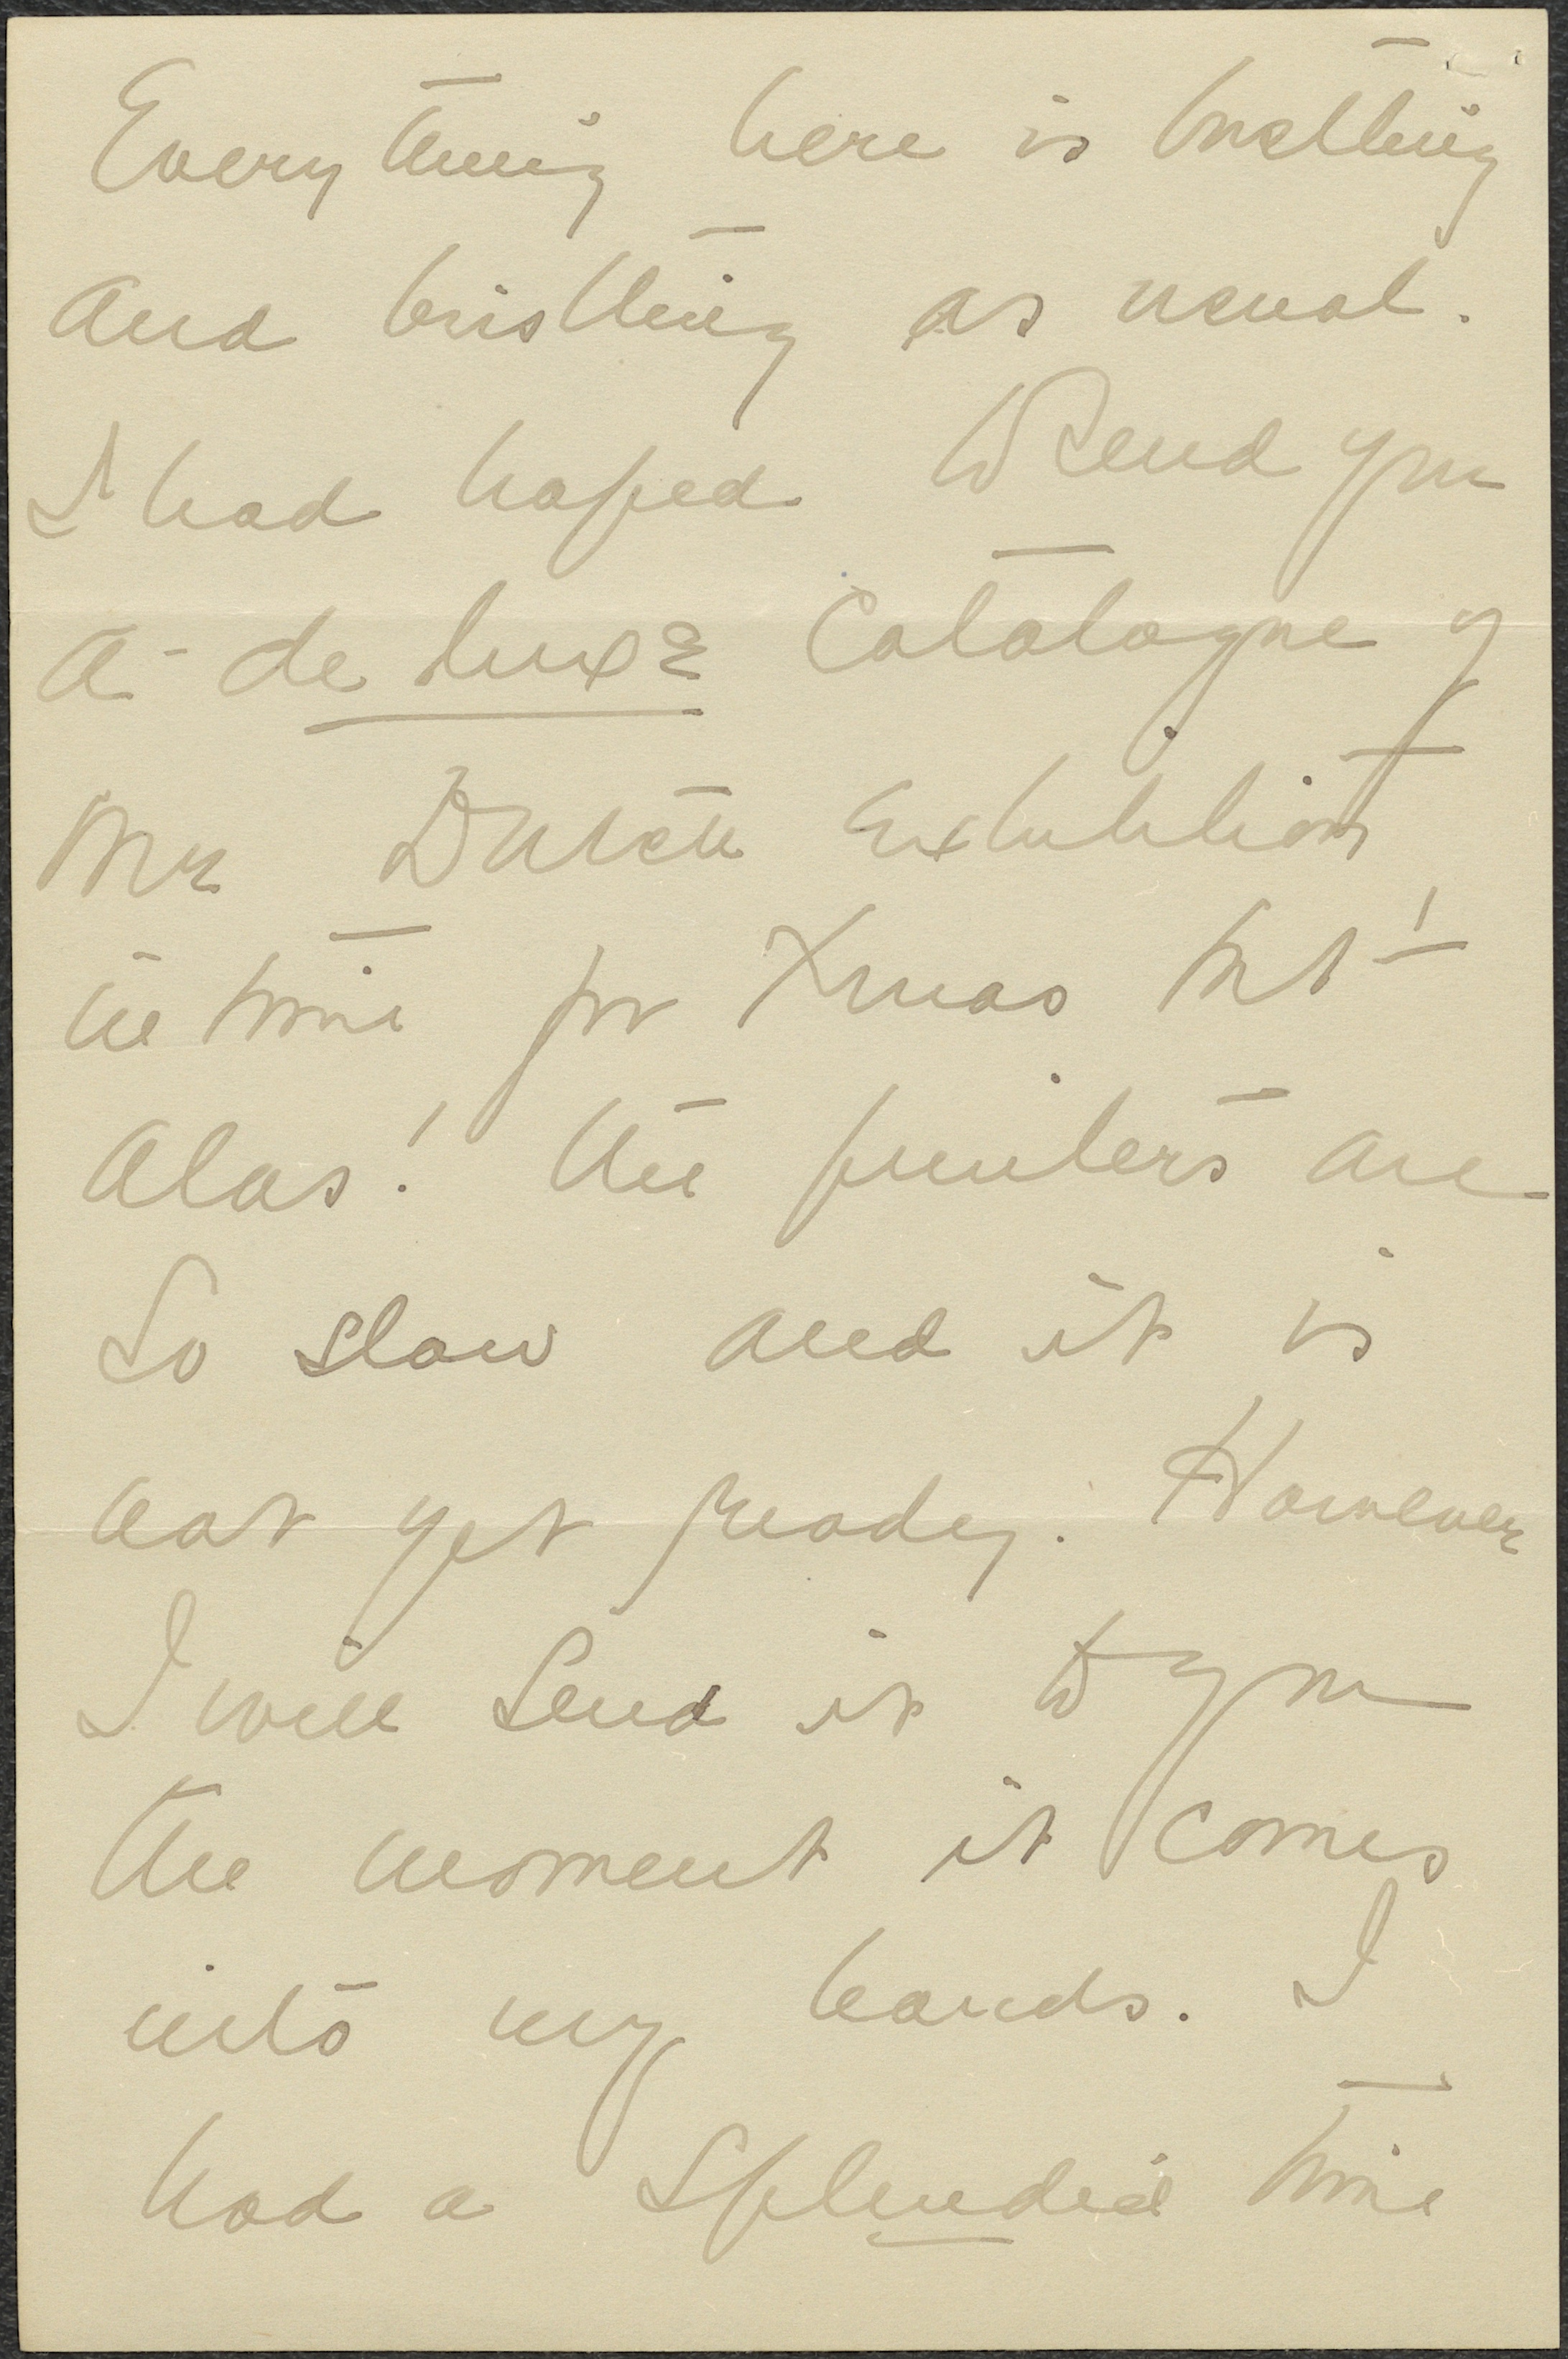 Everything here is bustling
and bristling as usual.
I had hoped to send you
a de luxe Catalogue of
the Dutch Exhibition
in time for Xmas but
Alas! the printers are
so slow and it is
not yet ready. However
I will send it to you
the moment it comes
into my hands. I
had a splendid time